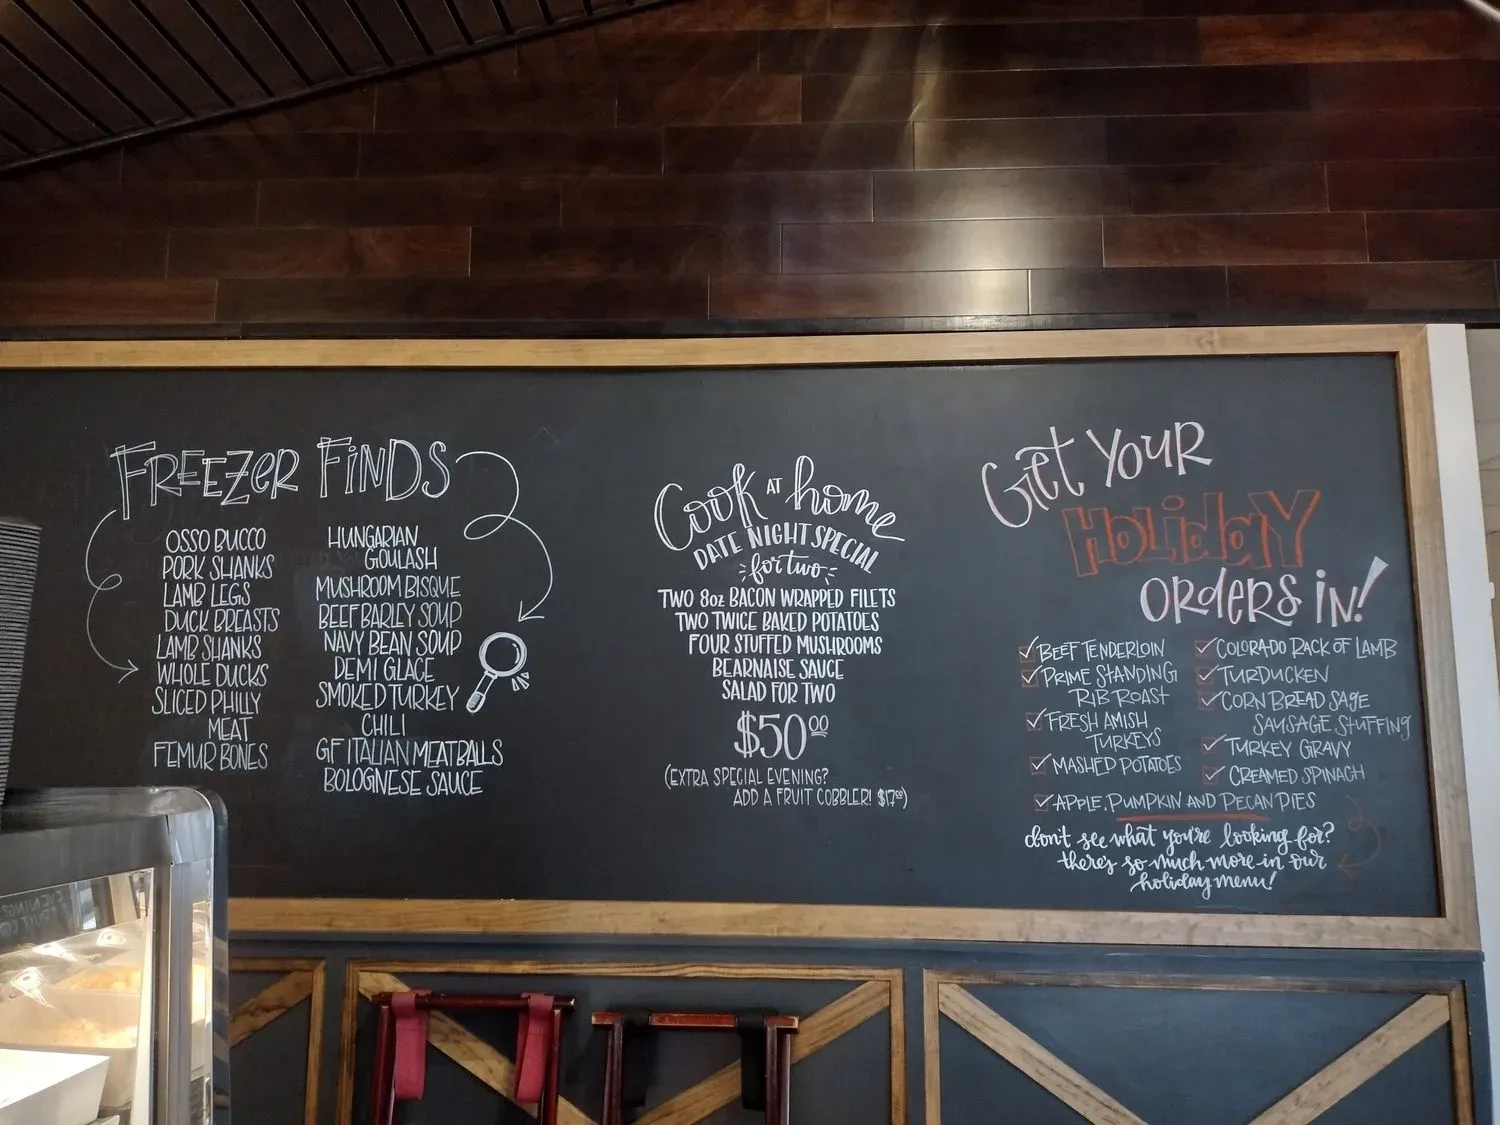 FREEZER FINDS
OSSO BUCCO
PORK SHANKS
LAMB LEGS
DUCK BREASTS
LAMB SHANKS
WHOLE DUCKS
SLICED PHILLY
MEAT
FEMUR BONES
HUNGARIAN
GOULASH
MUSHROOM BISQUE
BEEF BARLEY SOUP
NAVY BEAN SOUP
DEMI GLACE
SMOKED TURKEY
CHILI
GF ITALIAN MEATBALLS
BOLOGNESE SAUCE
Cook AT home
DATE NIGHT SPECIAL
for two
TWO 8oz BACON WRAPPED FILETS
TWO TWICE BAKED POTATOES
FOUR STUFFED MUSHROOMS
BEARNAISE SAUCE
SALAD FOR TWO
$50.00
(EXTRA SPECIAL EVENING?
ADD A FRUIT COBBLER! $17.00)
Get YOUR
HOLIDAY
ORDERS IN!
BEEF TENDERLOIN
PRIME STANDING
RIB ROAST
FRESH AMISH
TURKEYS
MASHED POTATOES
COLORADO RACK OF LAMB
TURDUCKEN
CORN BREAD SAGE
SAUSAGE STUFFING
TURKEY GRAVY
CREAMED SPINACH
APPLE, PUMPKIN AND PECAN PIES
don't see what you're looking for?
there's so much more in our
holiday menu!